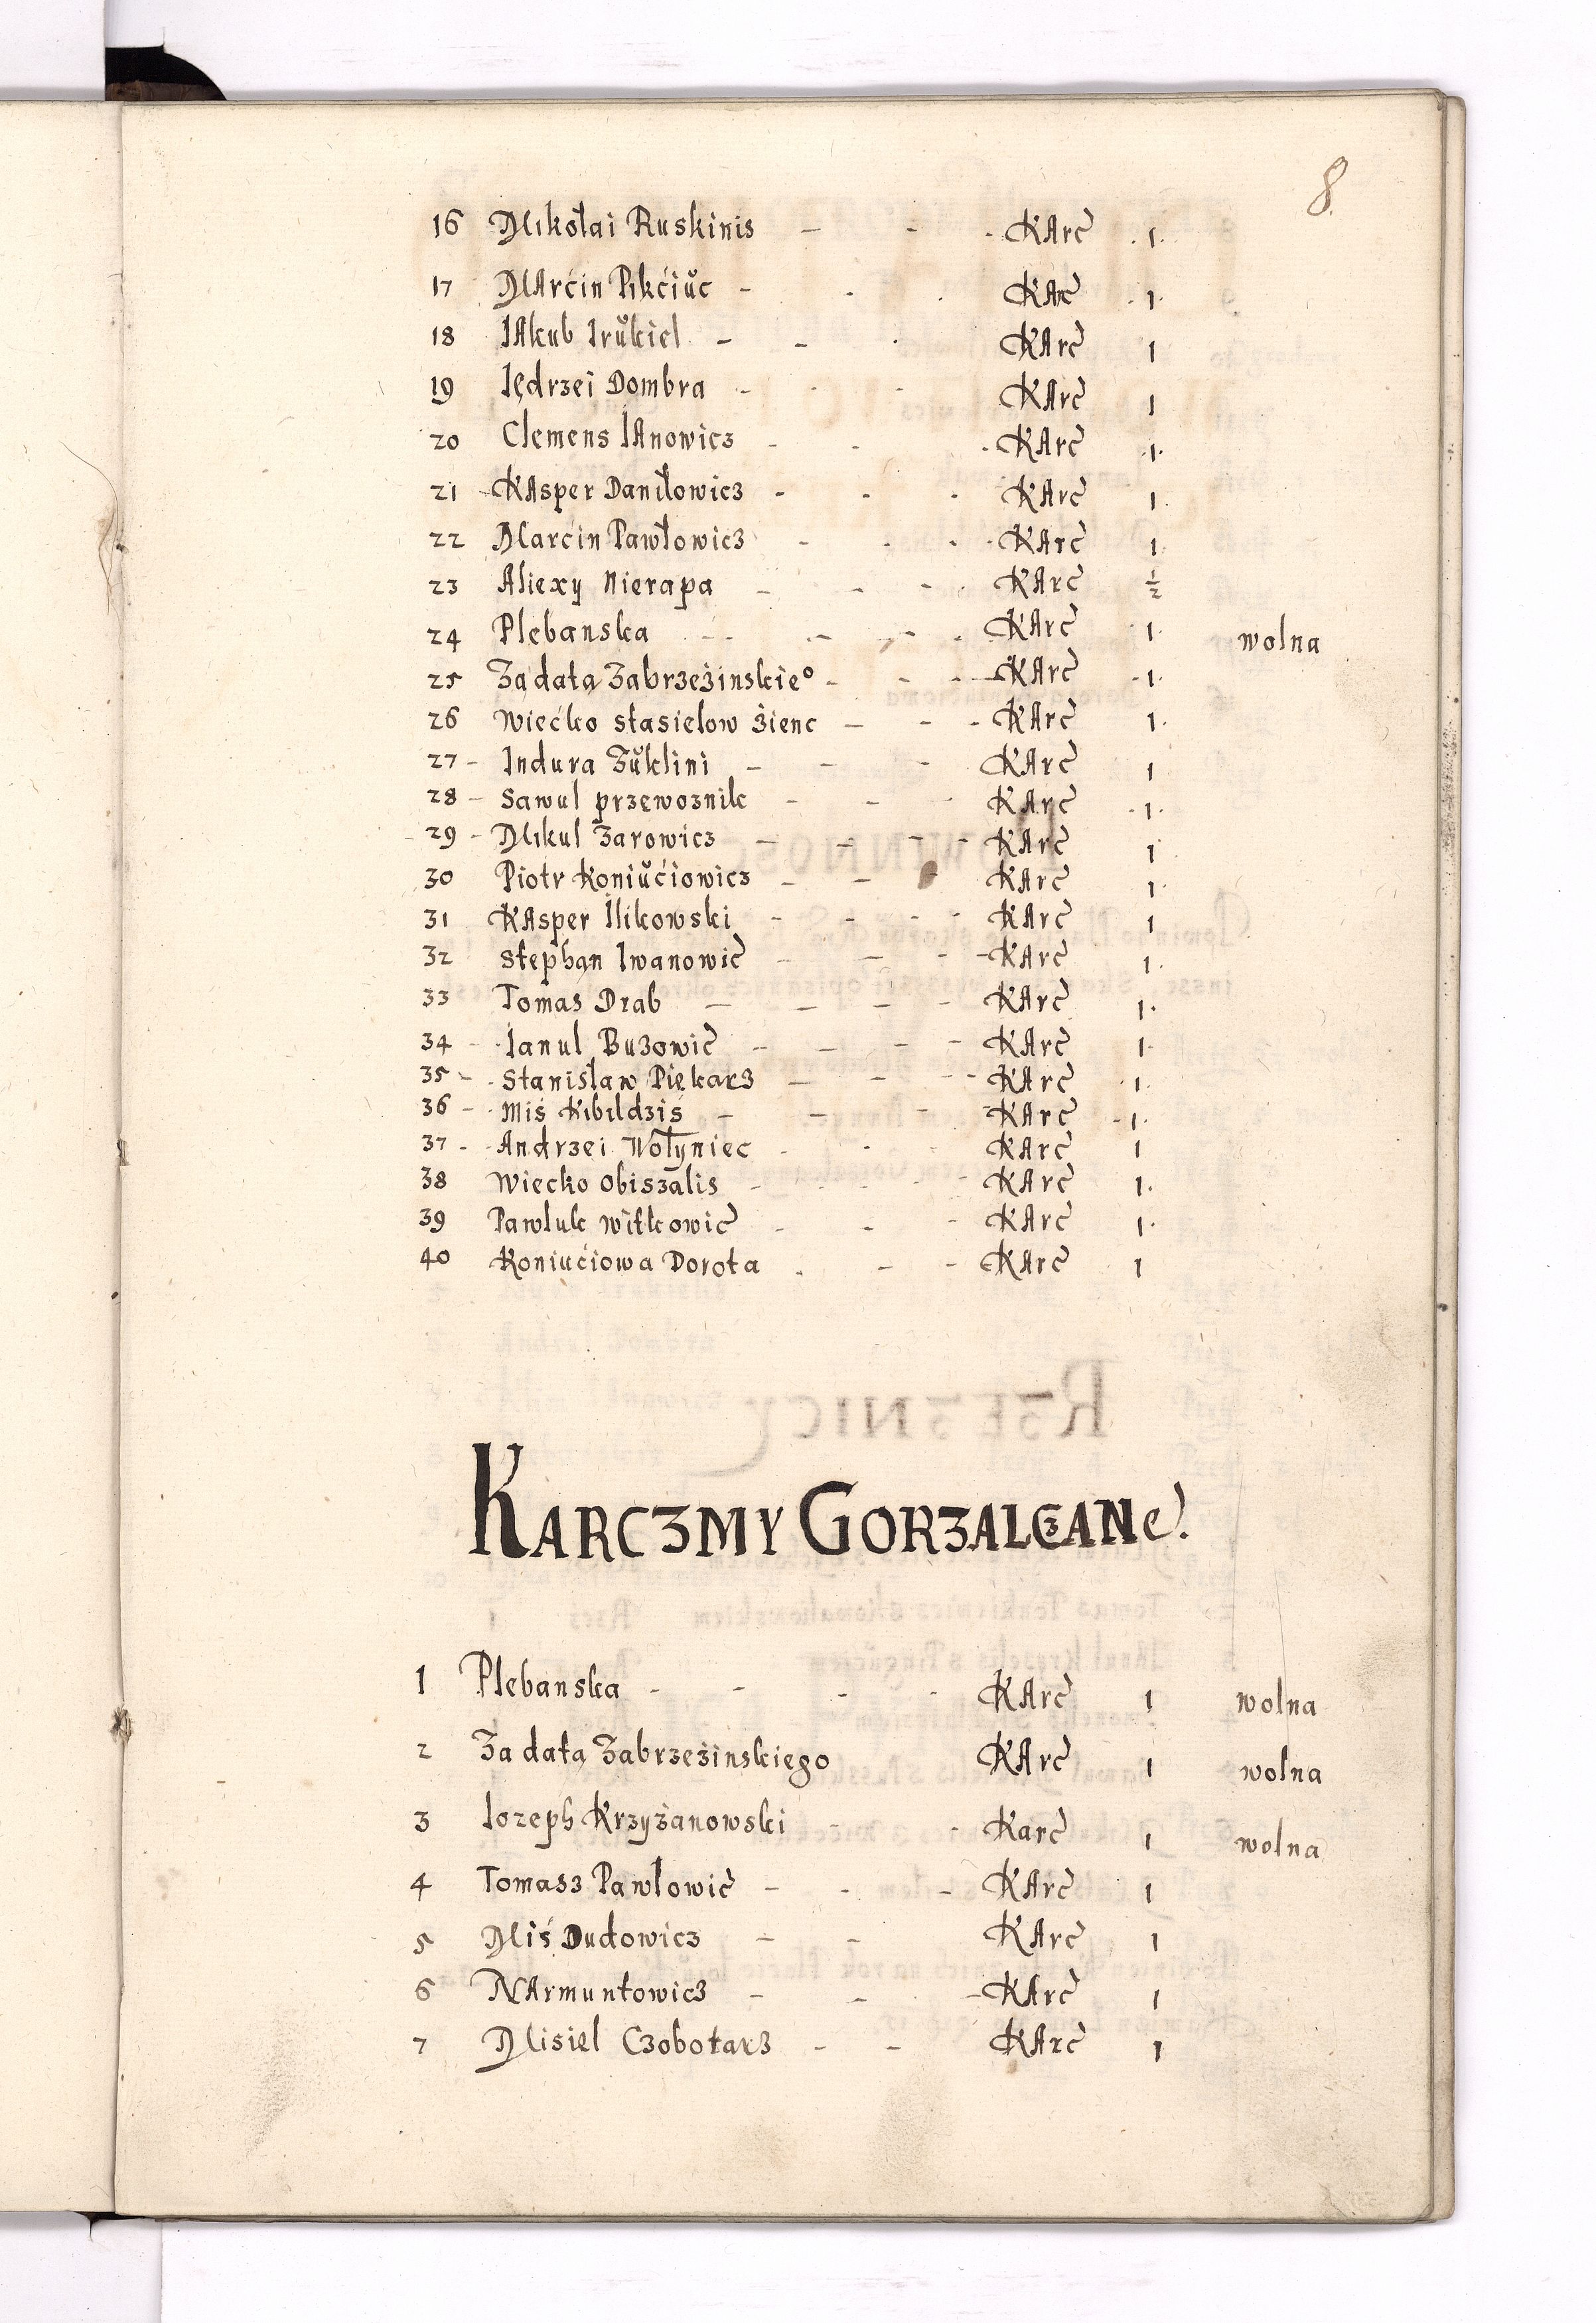 8.
16 Mikołai Ruskinis - - Karč 1.
17 Marcin Pikciŭc - Karč 1.
18 Iakub Irŭkiel - - Karč 1
19 Iędrzei Dombra - Karč 1
20 Clemens Ianowicz - - Karč 1.
21 Kasper Daniłowicz - - - Karč 1.
22 Marcin Pawłowicz - - - Karč 1
23 Aliexy Nierapa - - - Karč ½
24 Plebanska - - - Karč 1. wolna
25 Za datą Zabrzeżinskie° - - Karč 1.
26 Wiećko stasielow żienc - - - Karč 1.
27 - Indura Zŭklini - - - Karč 1
28 - Sawul przewoznik - - - Karč 1.
29 - Mikul Zarowicz - - - Karč 1
30 Piotr Koniŭćiowicz - - - Karč 1.
31 Kasper Ilikowski - - - Karč 1
32 Stephan Iwanowič - - - Karč 1.
33 Tomaś Drab - - - - Karč 1.
34 - Ianul Buzowič - - - - Karč 1.
35 - Stanisław Piękarz - - - Karč 1.
36 - Miś Kibildziś - - - Karč 1.
37 - Andrzei Wołyniec - - Karč 1
38 Wiecko Obiszalis - - - Karč 1.
39 Pawluk Witkowič - - - Karč 1.
40 Koniućiowa Dorota - - - Karč 1
KARCZMY GORZALCZANe.
1 Plebanska - - - - Karč 1 wolna
2 Za datą Zabrzeżinskiego Karč 1 wolna
3 Iozeph Krzyżanowski - - Karč 1 wolna
4 Tomasz Pawłowič - - - Karč 1
5 Miś Dudowicz - - Karč 1
6 Narmuntowicz - - - Karč 1
7 Misiel Czobotarz - - Karč 1